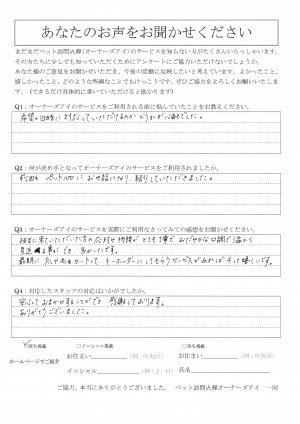 あなたのお声をお聞かせください
まだまだペット訪問火葬(オーナーズアイ)のサービスを知らない方がたくさんいらっしゃいます。
その方たちに少しでも知っていただくためにアンケートにご協力いただけないでしょうか。
あなた様のご意見をお聞かせいただき、今後の活動に反映したいと考えています。よかったこと、
嬉しかったこと、どのような些細なことでもけっこうです。ぜひご協力をよろしくお願いいたしま
す。(できるだけ具体的に書いていただけると助かります)
Q1:オーナーズアイのサービスをご利用される前に悩んでいたことをお教えください。
希望の日時に対応していただけるのか どうかが心配でした。
Q2:何が決め手となってオーナーズアイのサービスをご利用されましたか。
前回も ペットの時に お世話になり、
Q3:オーナーズアイのサービスを実際にご利用なさってみての感想をお聞かせください。
担当に来ていただいた方の応対や物腰が とても丁寧で おだやかな口調で温かく
見送る事ができ 良かったです。
最期に 爪や毛をカットして キーホルダーにしてもらうサービスがあればもっと嬉しいです。
Q4:対応したスタッフの対応はいかがでしたか。
安心して おまかせすることができ 感謝しております。
ありがとうございました。
□匿名掲載 □イニシャル掲載 □実名掲載
ホームページでご紹介
お住まい (例:中央区)
イニシャル (例:J.H)
お住まい (例:中央区)
氏名
ご協力、本当にありがとうございました。 ペット訪問火葬オーナーズアイ 一同